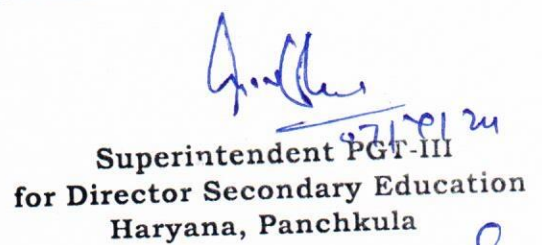 Superintendent PGT-III
for Director Secondary Education
Haryana, Panchkula